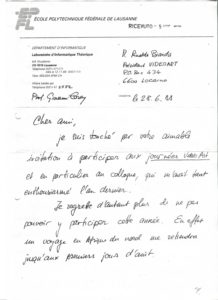 ÉCOLE POLYTECHNIQUE FÉDÉRALE DE LAUSANNE
RICEVUTO
DÉPARTEMENT D'INFORMATIQUE
Laboratoire d'Informatique Théorique
R. Rinaldo Bianda
Président VIDEOART
P.O. Box 434
6600 Locarno
le 28.6.88
Cher ami,
je suis touché par votre aimable
invitation à participer aux journées Video Art
et en particulier au colloque, qui m'avait tant
enthousiasmé l'an dernier.
Je regrette d'autant plus de ne pas
pouvoir y participer cette année. En effet
un voyage en du nord me retiendra
jusqu'aux premiers jours d'août